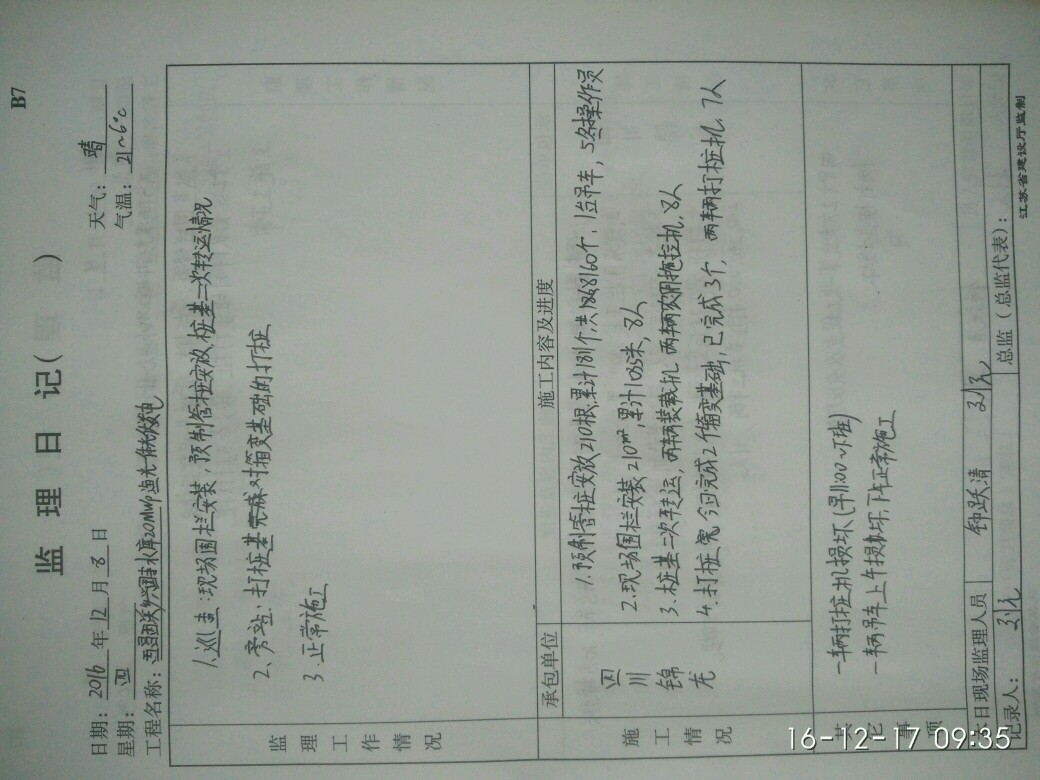 B7
监 理 日 记(
日期: 2016 年 12 月 8 日
天气: 晴
星期: 四
气温: 21~6°C
工程名称:
监理工作情况
1.巡查:现场围栏安装,预制管桩安放,桩基二次转运情况
2、旁站:打桩基完成对箱变基础的打桩
3.正常施工
施工情况
承包单位
施工内容及进度
四川锦龙
1.预制管桩安放210根,累计1811个,共 1台吊车,5名操作员
2.现场围栏安装210m,累计1035米,8人
3.桩基二次转运,两辆装载机 两辆农用拖拉机,8人
4.打桩 今日完成2个箱变基础,已完成3个,两辆打桩机,7人
其它事项
一辆打桩机损坏(早11:00~下班)
一辆吊车上午损坏,下午正常施工
日现场监理人员
钟跃清
刘元
记录人:
刘元
总监(总监代表):
江苏省建设厅监制
16-12-17 09:35